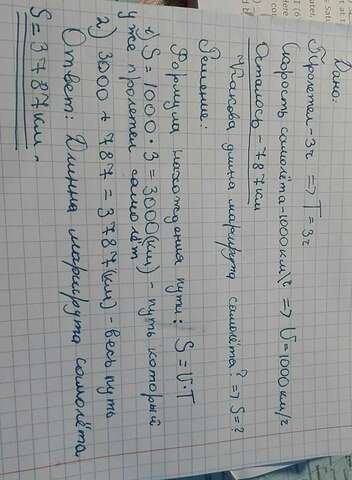 Дано:
Пролетел - 3ч => T = 3ч
Скорость самолёта - 1000 км/ч => V = 1000 км/ч
Осталось - 787 км
Какова длина маршрута самолёта? => S = ?
Решение:
Формула нахождения пути: S = V · T
1) S = 1000 · 3 = 3000 (км) - путь который
уже пролетел самолёт
2) 3000 + 787 = 3787 (км) - весь путь
Ответ: Длинна маршрута самолёта
S = 3787 км.